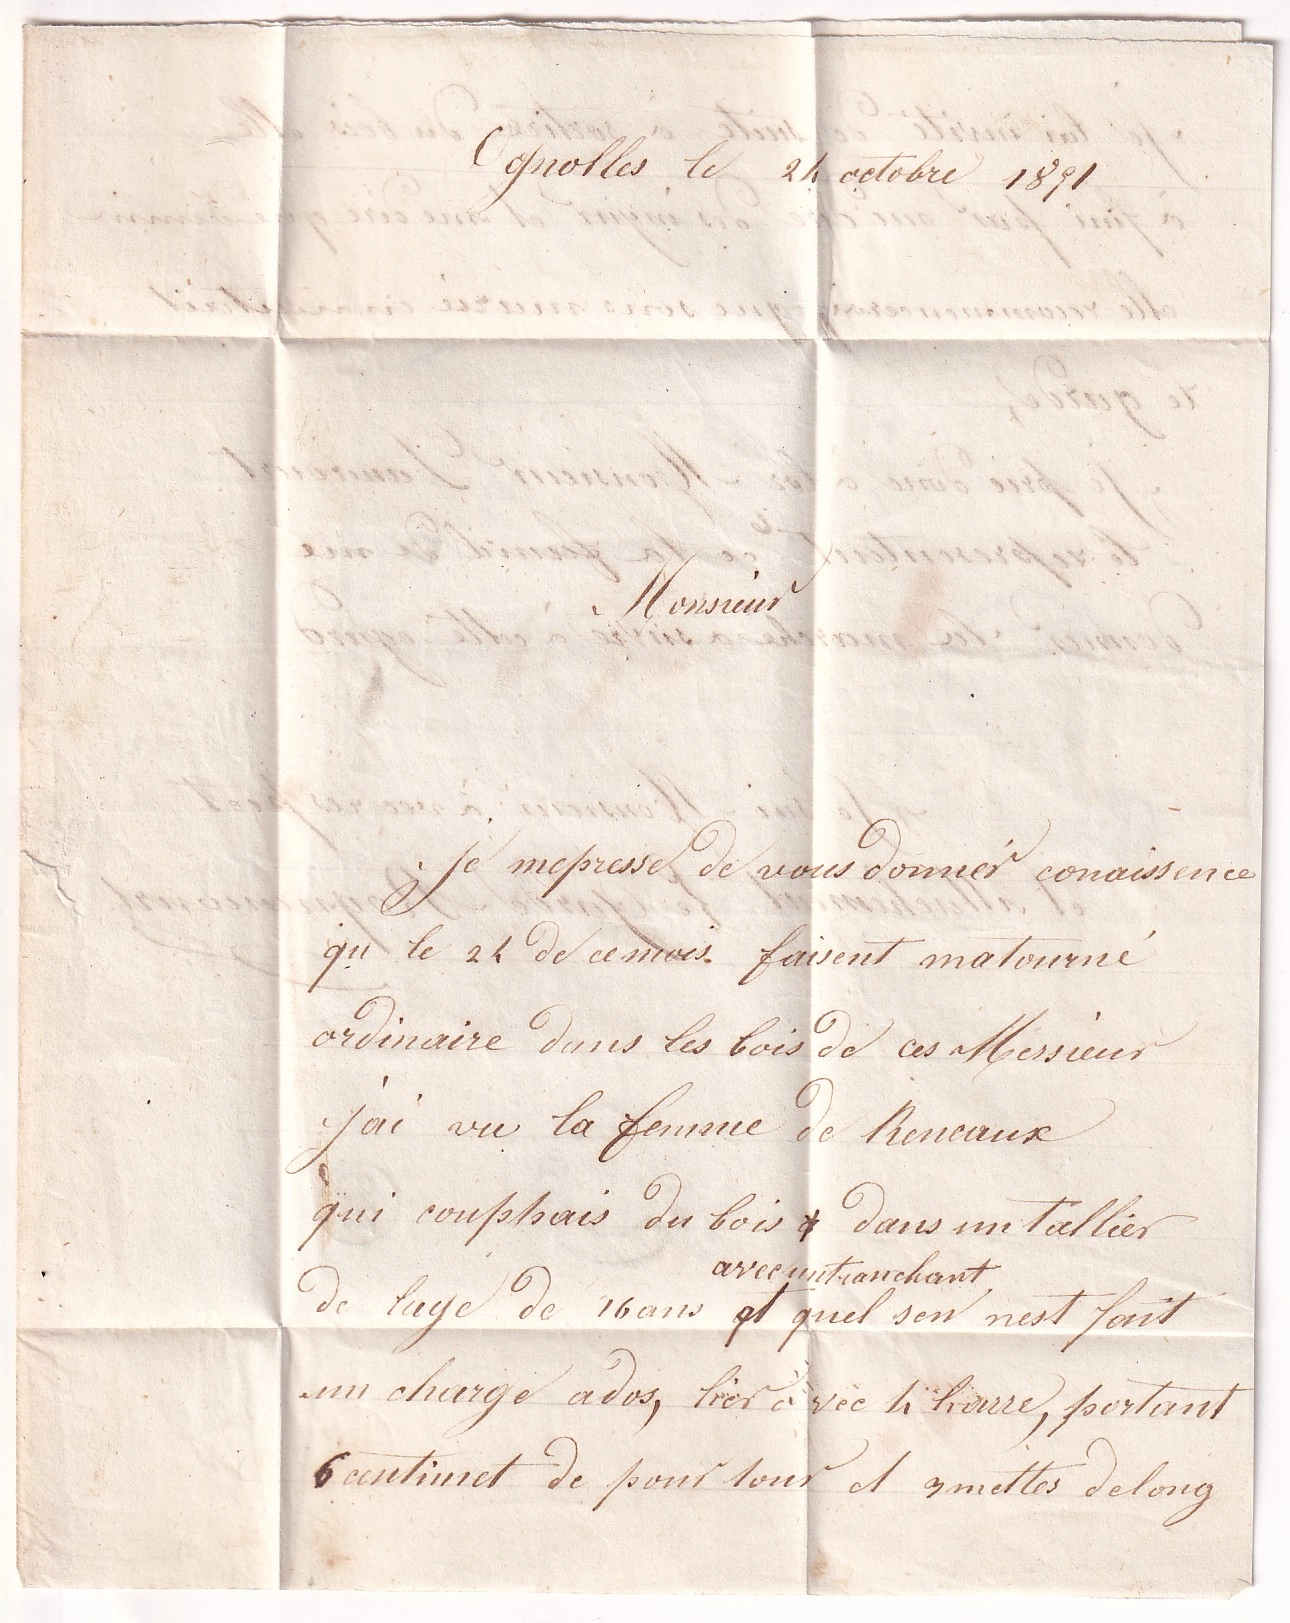 Ognolles le 24 octobre 1891
Monsieur
je mepresse de vous donnér conaissence
qu le 24 de ce mois faisent matourné
ordinaire dans les bois de ces Messieur
j'ai vu la femme de Reneaux
qui couphais du bois dans un tallier
avec un tranchant
de laye de 16 ans et quel sen nest fait
un charge ados, lier àvec 4 harre, portant
6 centimet de pour tour et 3 mettes delong